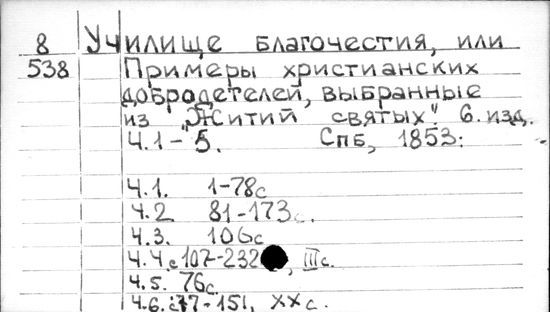 8 Училище благочестия, или
538 Примеры христианских
добродетелей, выбранные
из „Житий святых". 6. изд.
Ч.1-5. Спб, 1853.
Ч.1. 1-78с
Ч.2 81-173с.
Ч.3. 106с
Ч.4. с 107-232, IIIс.
Ч.5. 76с.
Ч.6. с 77-151, XXс.